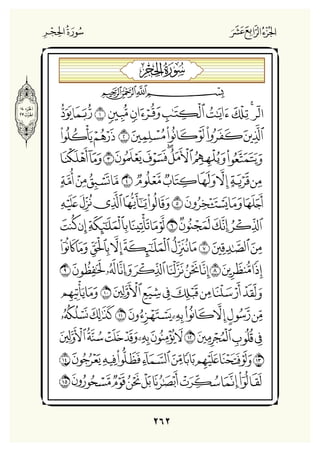 الجزء الرابع عشر
سورة الحجر
سورة الحجر
بسم الله الرحمن الرحيم
الٓر ۚ تِلْكَ ءَايَٰتُ ٱلْكِتَٰبِ وَقُرْءَانٍ مُّبِينٍ ١ رُّبَمَا يَوَدُّ
ٱلَّذِينَ كَفَرُوا۟ لَوْ كَانُوا۟ مُسْلِمِينَ ٢ ذَرْهُمْ يَأْكُلُوا۟
وَيَتَمَتَّعُوا۟ وَيُلْهِهِمُ ٱلْأَمَلُ ۖ فَسَوْفَ يَعْلَمُونَ ٣ وَمَآ أَهْلَكْنَا
مِن قَرْيَةٍ إِلَّا وَلَهَا كِتَابٌ مَّعْلُومٌ ٤ مَّا تَسْبِقُ مِنْ أُمَّةٍ
أَجَلَهَا وَمَا يَسْتَـْٔخِرُونَ ٥ وَقَالُوا۟ يَٰٓأَيُّهَا ٱلَّذِى نُزِّلَ عَلَيْهِ
ٱلذِّكْرُ إِنَّكَ لَمَجْنُونٌ ٦ لَّوْ مَا تَأْتِينَا بِٱلْمَلَٰٓئِكَةِ إِن كُنتَ
مِنَ ٱلصَّٰدِقِينَ ٧ مَا نُنَزِّلُ ٱلْمَلَٰٓئِكَةَ إِلَّا بِٱلْحَقِّ وَمَا كَانُوٓا۟
إِذًا مُّنظَرِينَ ٨ إِنَّا نَحْنُ نَزَّلْنَا ٱلذِّكْرَ وَإِنَّا لَهُۥ لَحَٰفِظُونَ ٩
وَلَقَدْ أَرْسَلْنَا مِن قَبْلِكَ فِى شِيَعِ ٱلْأَوَّلِينَ ١٠ وَمَا يَأْتِيهِم
مِّن رَّسُولٍ إِلَّا كَانُوا۟ بِهِۦ يَسْتَهْزِءُونَ ١١ كَذَٰلِكَ نَسْلُكُهُۥ
فِى قُلُوبِ ٱلْمُجْرِمِينَ ١٢ لَا يُؤْمِنُونَ بِهِۦ ۖ وَقَدْ خَلَتْ سُنَّةُ ٱلْأَوَّلِينَ
١٣ وَلَوْ فَتَحْنَا عَلَيْهِم بَابًا مِّنَ ٱلسَّمَآءِ فَظَلُّوا۟ فِيهِ يَعْرُجُونَ ١٤
لَقَالُوٓا۟ إِنَّمَا سُكِّرَتْ أَبْصَٰرُنَا بَلْ نَحْنُ قَوْمٌ مَّسْحُورُونَ ١٥
٢٦٢